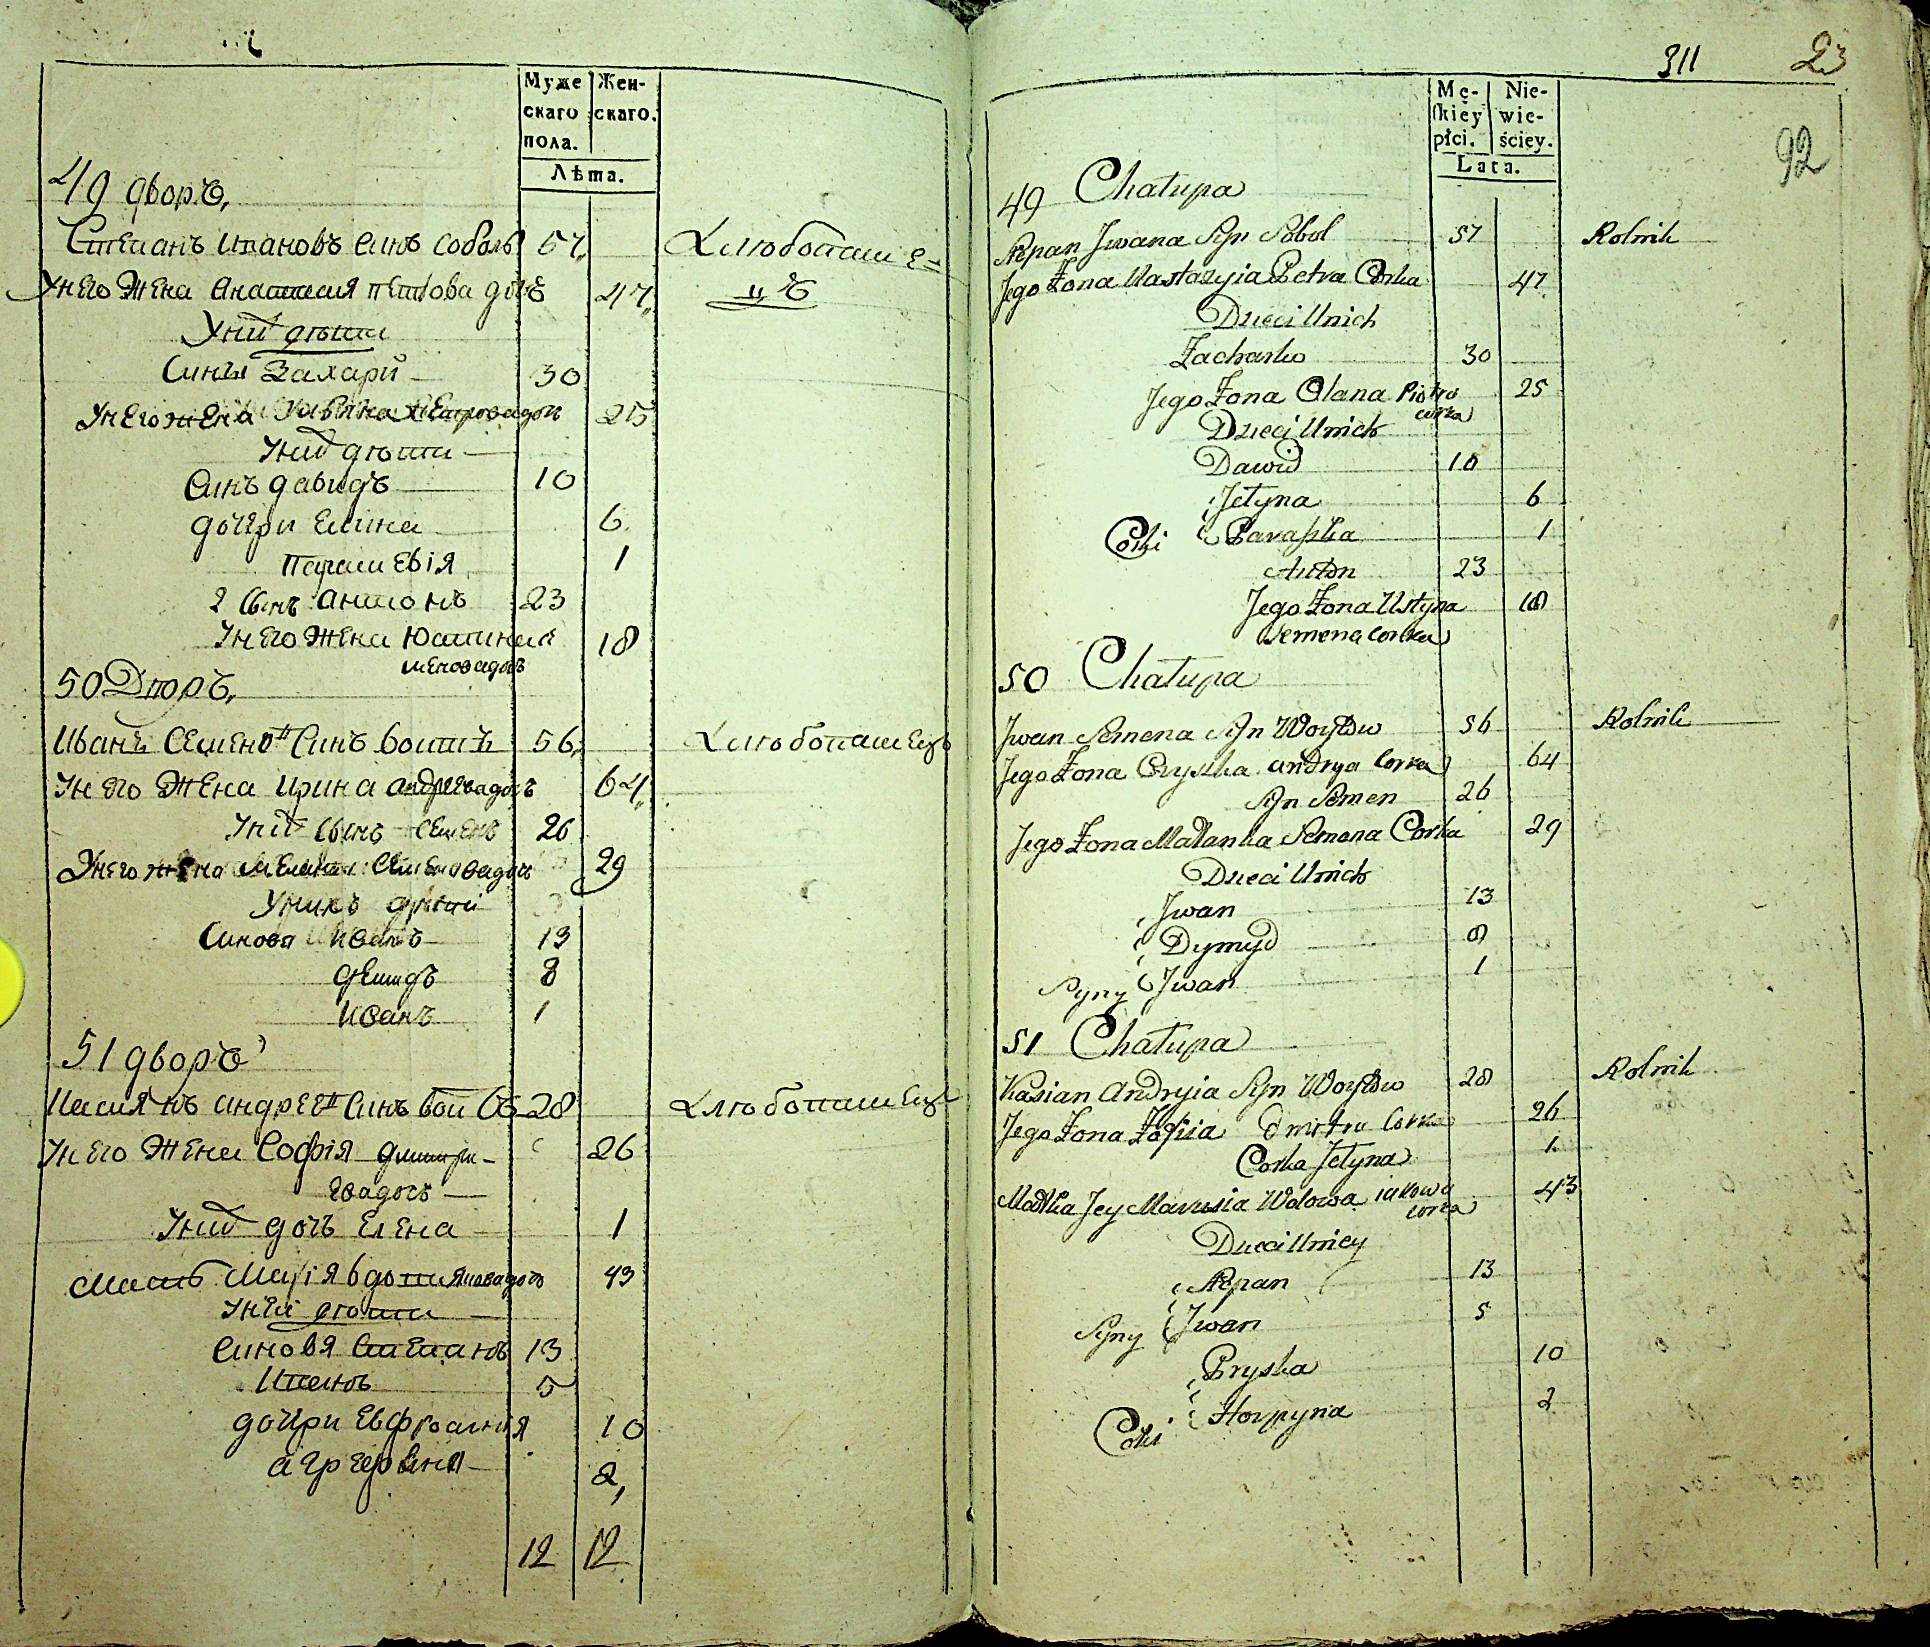 Муже
скаго
пола.
Жен-
скаго.
Лѣта.
49 дворъ,
Степанъ Ивановъ Синъ Соболь 57, Хлюбопаше=
цъ
Унего Жена Анастасия петрова дочь 47,
Унихъ дѣти
Сины Захарій 30
Унего жена Петровадочь 25
Унихъ дѣти
Синъ давидъ 10
дочери Елина 6
Параскевія 1
2 Сынъ Антонъ 23
Унего Жена Юстина Се
меновадочь 18
50 Дворъ,
Иванъ Семено Синъ Войтъ 56, Хлюбопашецъ
Унего Жена Ирина андреевадочь 64,
Унихъ Сынъ Семенъ 26
Унего жена Мелания Семеновадочь 29
Унихъ дѣти
Синовя Иванъ 13
демидъ 8
Иванъ 1
51 дворъ
Касиянъ андрее Синъ 28 Хлюбопашецъ
Унего Жена Софія дмитри- 26
евадочь
Унихъ дочъ Елена 1
Мать Марія вдо 43
Уней дѣти
Синовя Степанъ 13
Иванъ 5
дочери Евфросиния 10
агрепина 2,
12 12
311 23
92
Mę-
skiey
płci.
Nie-
wie-
ściey.
Lata.
49 Chałupa
Stepan Jwana Syn Sobol 57 Rolnik
Jego Zona Nastazyia Petra Corka 47
Dzieci Unich
Zacharko 30
Jego Zona Olana Piotra 25
corka
Dzieci Unich
Dawid 10
Jełyna 6
Corki Paraska 1
Anton 23
Jego Zona Ustyna 18
Semena Corka
50 Chałupa
Jwan Semena Syn Woytow 56 Rolnik
Jego Zona Pryska andrya Corka 64
Syn Semen 26
Jego Zona Małanka Semena Corka 29
Dzieci Unich
Jwan 13
Dymyd 8
Syny Jwan 1
51 Chałupa
Kasian Andryia Syn Woytow 28 Rolnik
Jego Zona Zofiia Dmitra Corka 26
Corka Jełyna 1
Matka Jey Marusia Wdowa iakowa 43
corka
Dzieci Uniey
Stepan 13
Syny Jwan 5
Pryska 10
Corki Horpyna 2